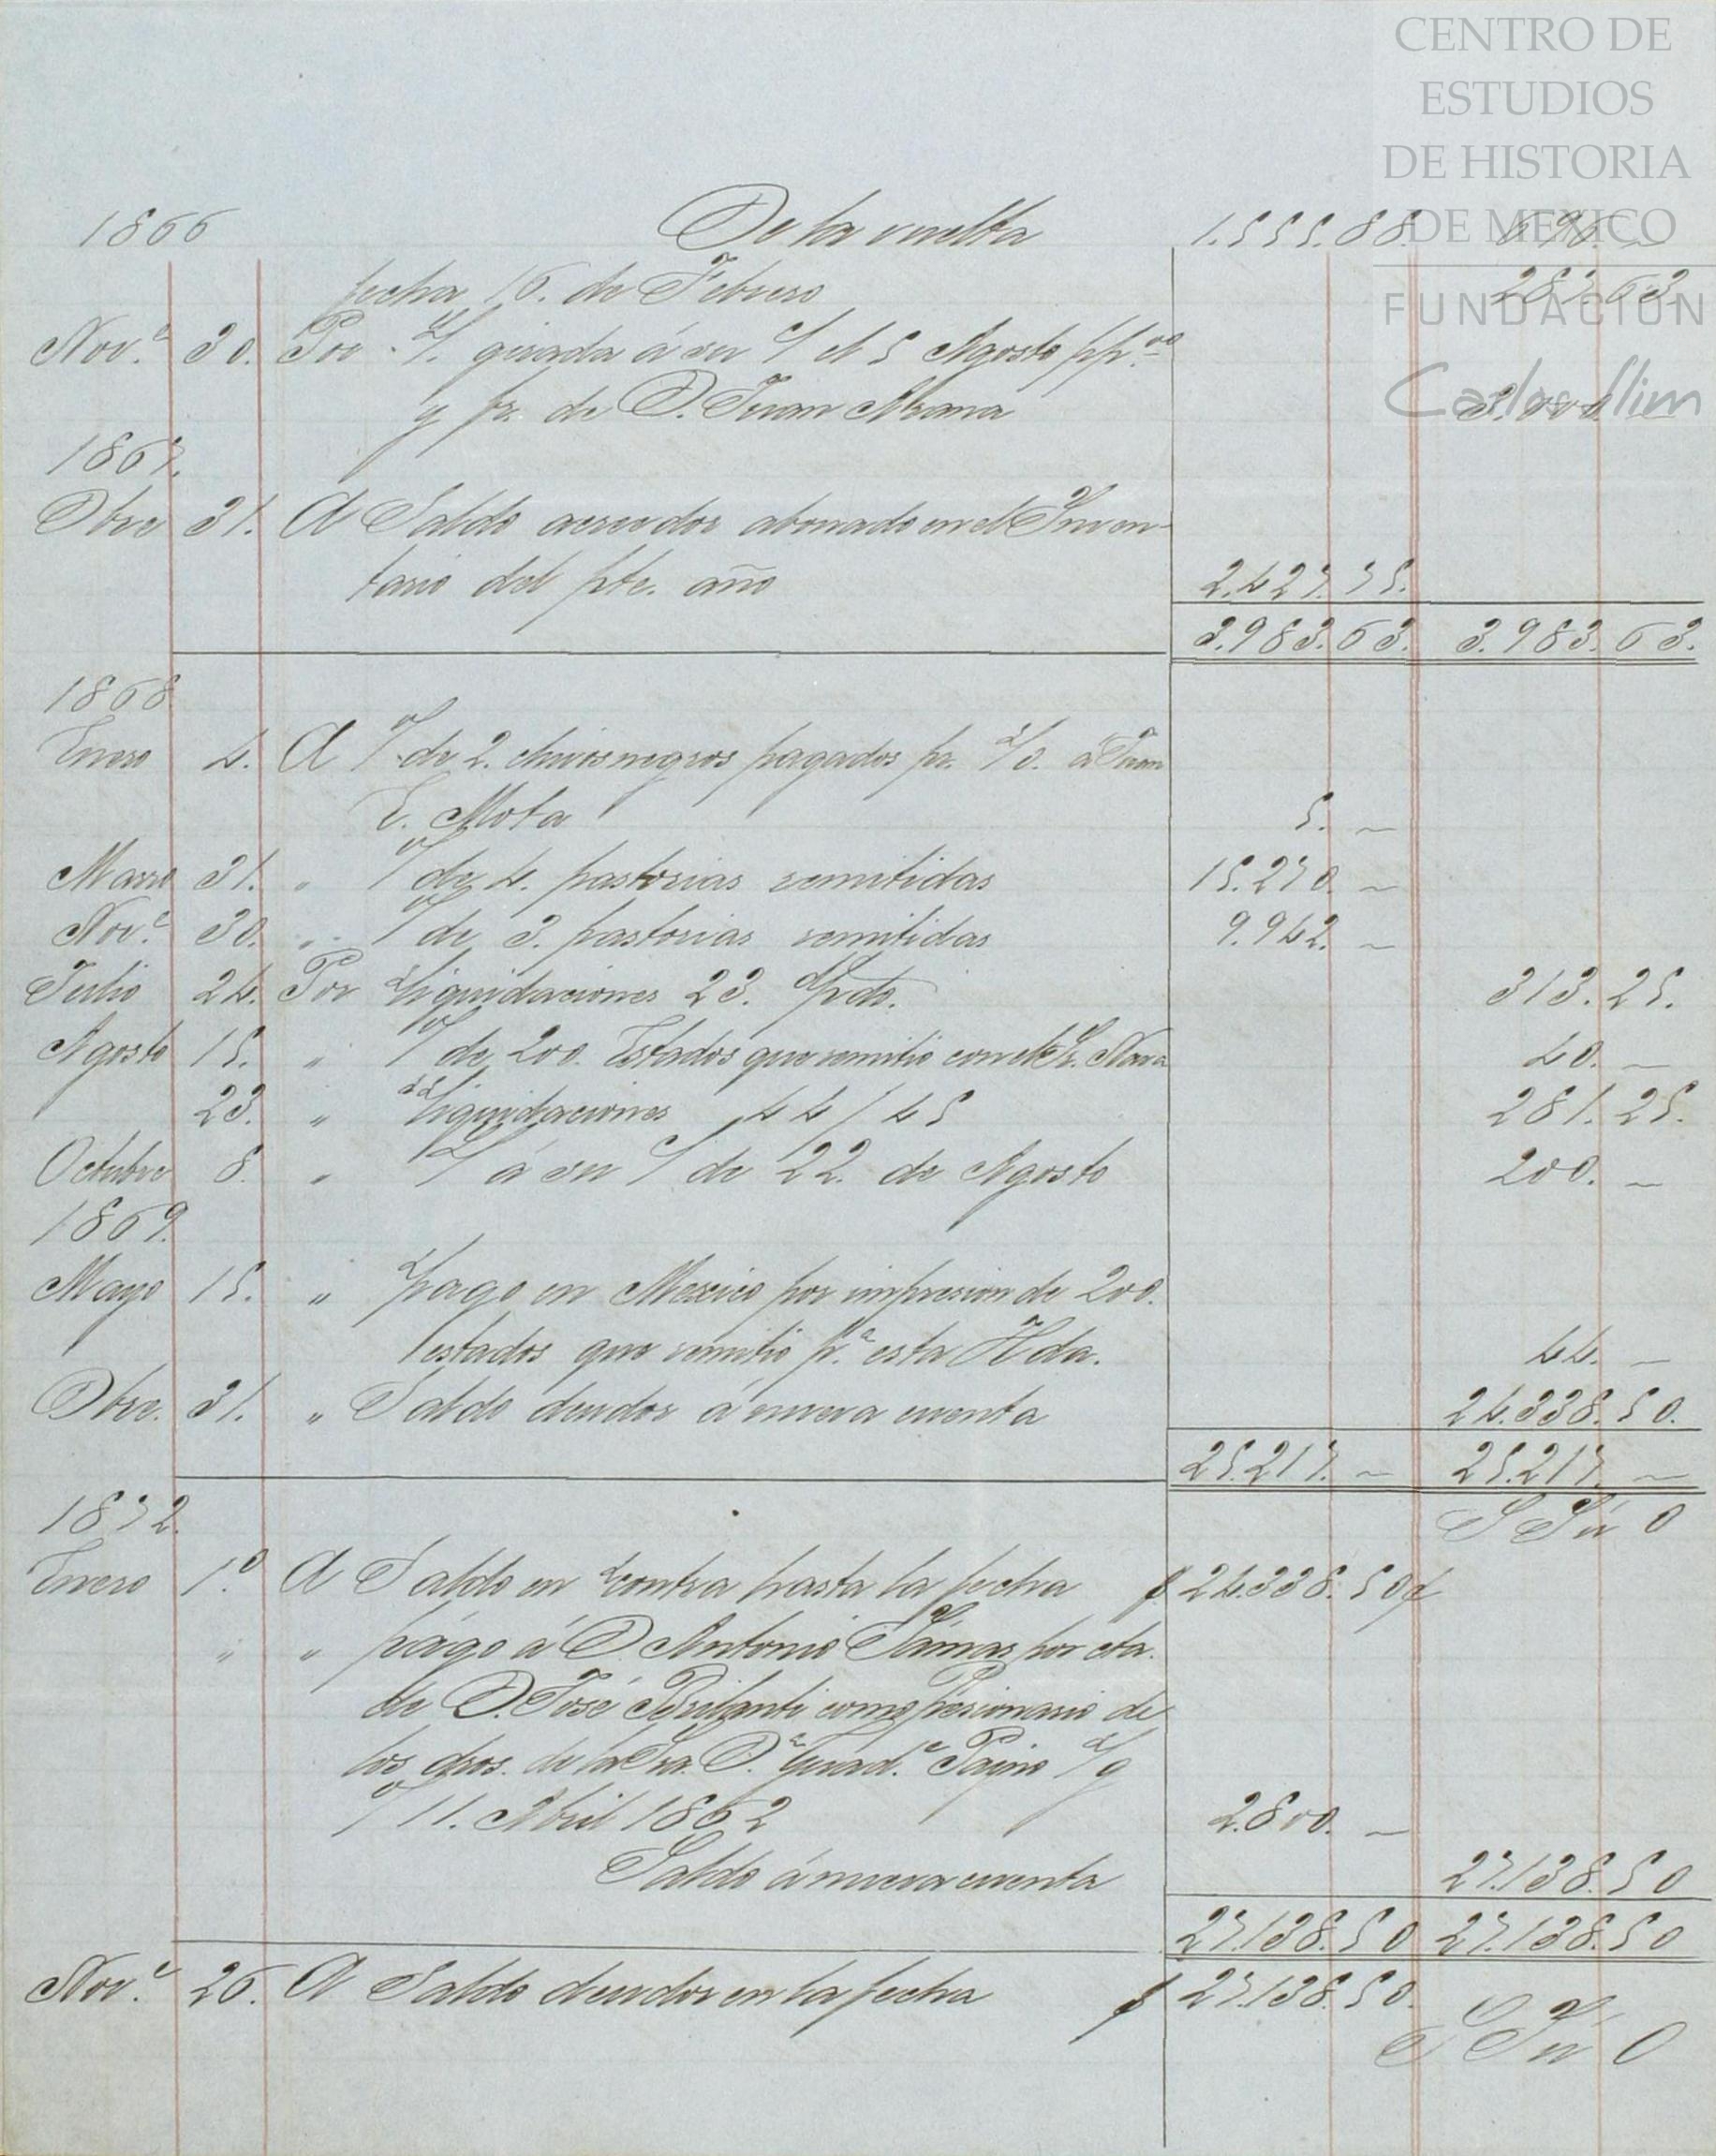 CENTRO DE
ESTUDIOS
DE HISTORIA
DE MEXICO
FUNDACIÓN
Carlos Slim
1866 De la vuelta 1.555.88. 696. –
fecha 16. de Febrero 287.63.
Nov.e 30. Por girada á su el 5 Agosto pp.do
y pr. de D. Juan Abrana 3.000. –
1867.
Dbre 31. A Saldo acreedor abonado en el Inven-
tario del pte. año 2.427.75.
3.983.63. 3.983.63.
1868
Enero 4. A de 2. chivos negros pagados pr. á Juan
E. Mota 5. –
Marzo 31. " de 4. pastorias remitidas 15.270. –
Nov.e 30. " de 3. pastorias remitidas 9.942. –
Julio 24. Por liquidaciones 23. 313.25.
Agosto 15. " de 200. Estados que remitió con el Sr. Nava 40. –
23. " liquidaciones 44/45 281.25.
Octubre 8. " á su de 22. de Agosto 200. –
1869.
Mayo 15. " pago en Mexico por impresion de 200.
estados que remitió p.a esta Hda. 44. –
Dbre. 31. " Saldo deudor á nueva cuenta 24.338.50.
25.217. – 25.217. –
S S ú O
1872.
Enero 1.o A Saldo en contra hasta la fecha $ 24.338.50
" " pago á D. Antonio por cta.
de D. José como de
los dros. de la Sra. D.a Guad.e Payno
11. Abril 1862 2.800. –
Saldo á nueva cuenta 27.138.50
27.138.50 27.138.50
Nov.e 26. A Saldo deudor en la fecha $ 27.138.50.
S S ú O